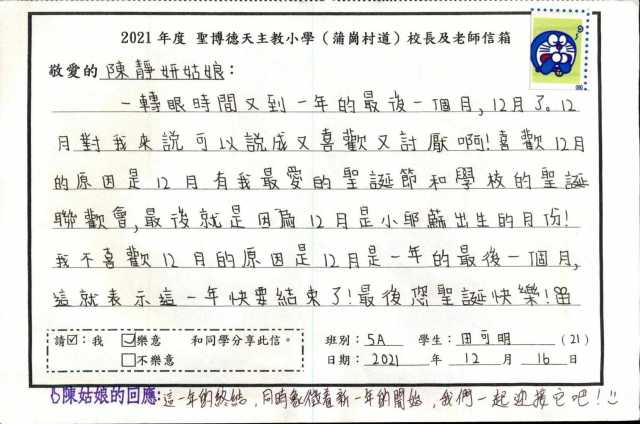 2021 年度 聖博德天主教小學（蒲崗村道）校長及老師信箱
敬愛的 陳靜妍姑娘：
一轉眼時間又到一年的最後一個月，12月了。12
月對我來說可以說成又喜歡又討厭啊!喜歡12月
的原因是12月有我最愛的聖誕節和學校的聖誕
聯歡會,最後就是因為12月是小耶穌出生的月份!
我不喜歡12月的原因是12月是一年的最後一個月,
這就表示這一年快要結束了!最後您聖誕快樂!
請☑：我 ☑樂意 和同學分享此信。
□不樂意
班別：5A 學生：田可明 (21)
日期：2021 年 12 月 16 日
陳姑娘的回應:這一年的終結,同時象徵着新一年的開始,我們一起迎接它吧!